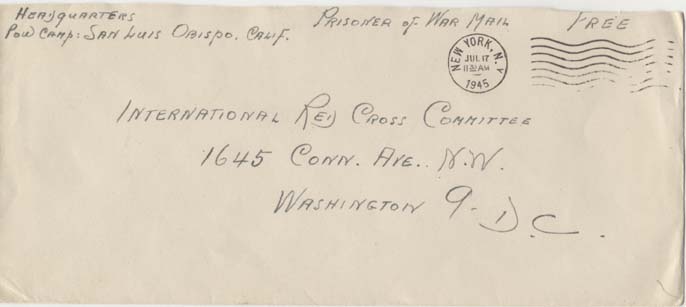 Headquarters
POW Camp: San Luis Obispo. Calif.
Prisoner of War Mail
Free
NEW YORK, N.Y.
JUL 17
1945
International Red Cross Committee
1645 Conn. Ave. N.W.
Washington 9. D.C.